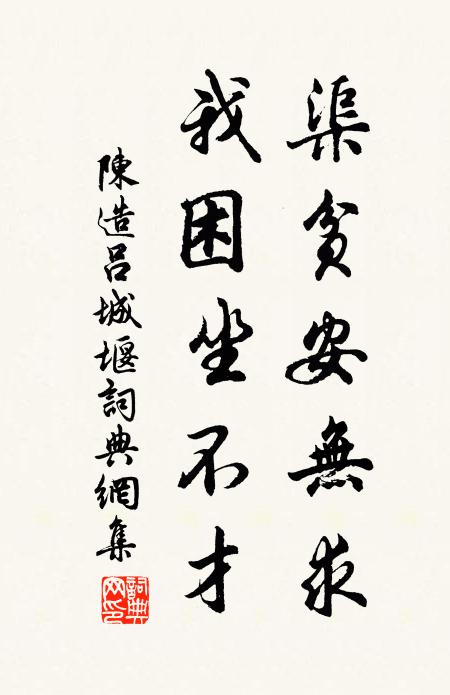 渠貧安無求
我困坐不才
陳造吕城堰詞典網集
詞典網印